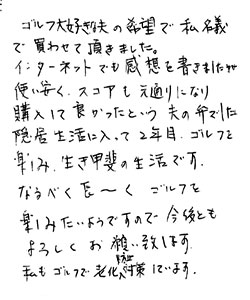 ゴルフ大好きな夫の希望で私名義
で買わせて頂きました。
インターネットでも感想を書きましたが
使い安く、スコアも元通りになり
購入して良かったという夫の弁でした
隠居生活に入って2年目、ゴルフを
楽しみ、生き甲斐の生活です。
なるべく長〜くゴルフを
楽しみたいようですので今後とも
よろしくお願い致します。
私もゴルフで老化防止対策しています。